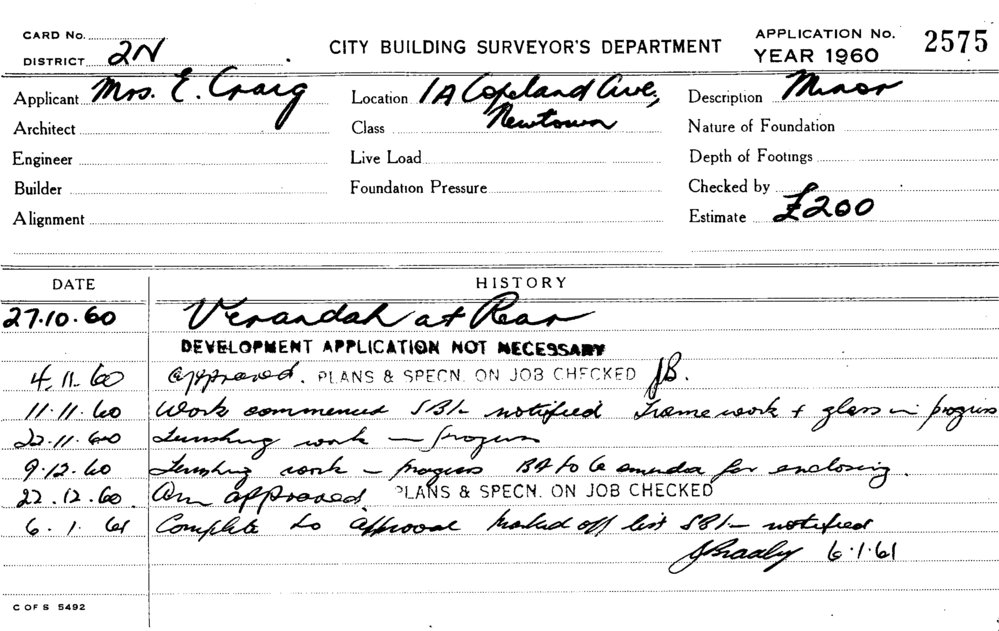 CARD No.
DISTRICT 2N
CITY BUILDING SURVEYOR'S DEPARTMENT
APPLICATION No. 2575
YEAR 1960
Applicant Mrs. E. Craig
Location 1A Copeland Ave,
Newtown
Description Minor
Architect
Class
Nature of Foundation
Engineer
Live Load
Depth of Footings
Builder
Foundation Pressure
Checked by
Alignment
Estimate £200
DATE HISTORY
27.10.60 Verandah at Rear
DEVELOPMENT APPLICATION NOT NECESSARY
4.11.60 approved. PLANS & SPECN. ON JOB CHECKED JB.
11.11.60 Work commenced SBI- notified Frame work + glass in progress
22.11.60 Finishing work in progress
9.12.60 Finishing work in progress BA to be amended for enclosing.
22.12.60 Am approved. PLANS & SPECN. ON JOB CHECKED
6.1.61 Complete to approval Marked off list SBI- notified
6.1.61
C OF S 5492